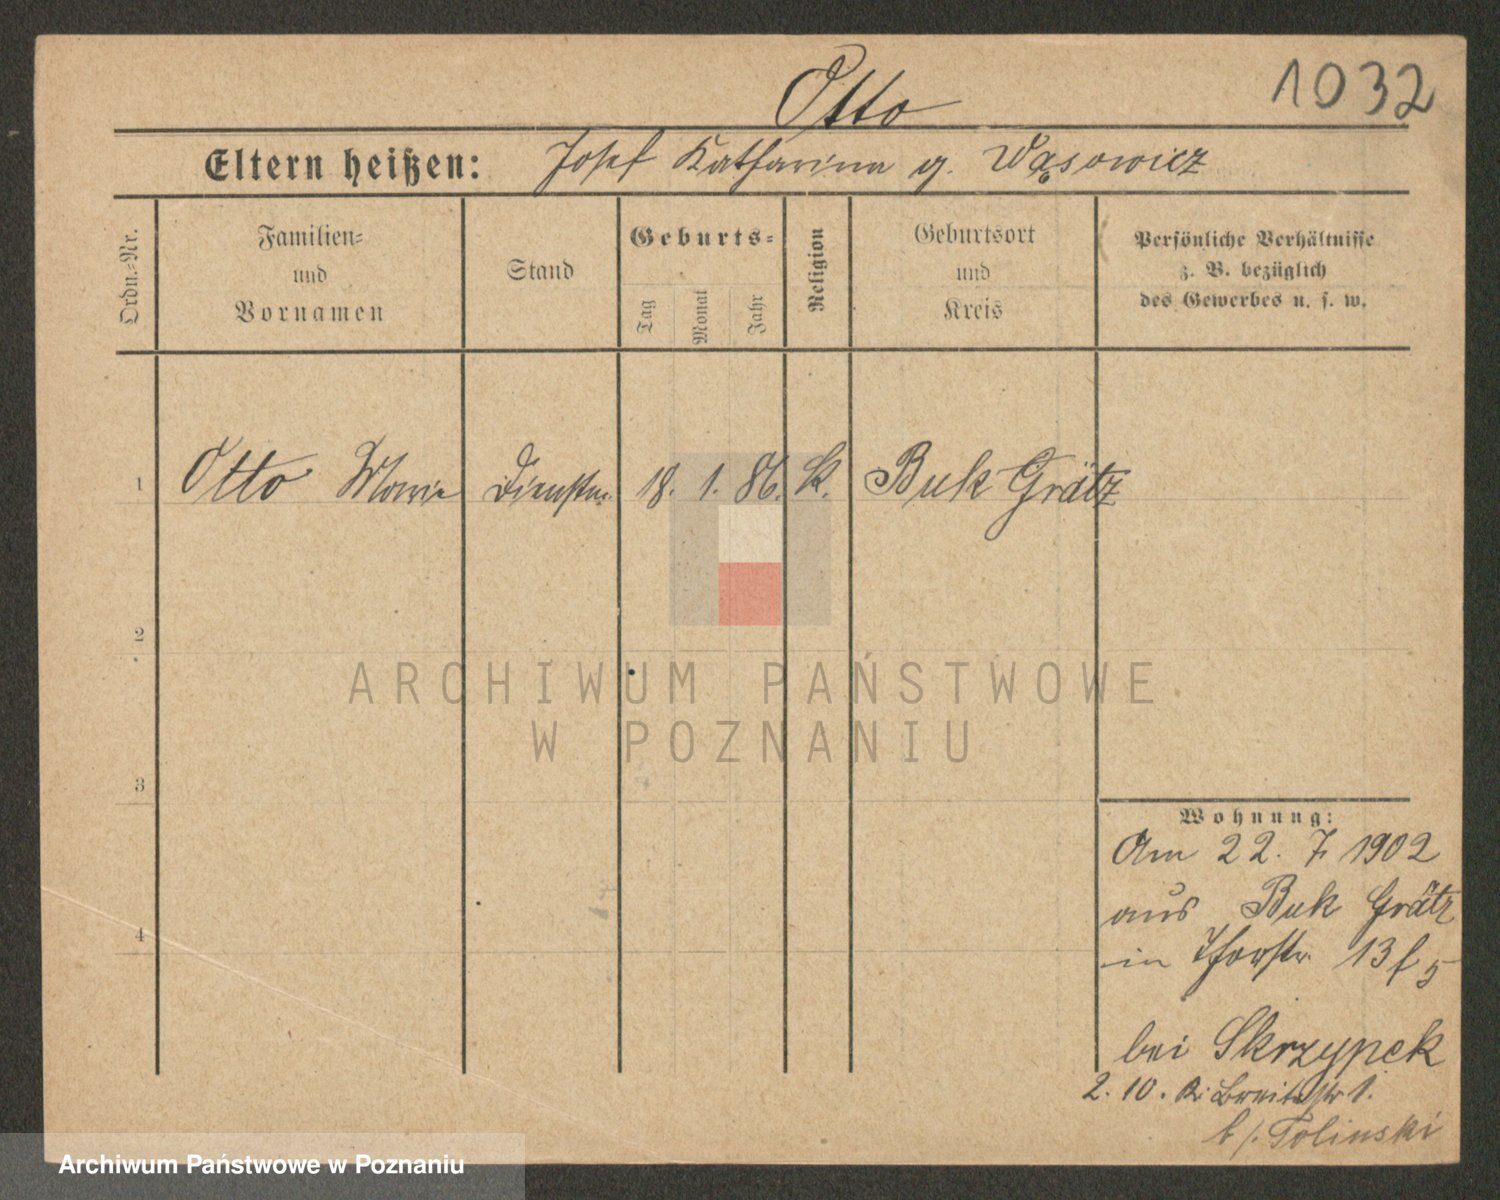 Otto
1032
Eltern heißen: Josef Katharina g. Wąsowicz
Ordn.-Nr.
Familien-
und
Vornamen
Stand
Geburts-
Tag
Monat
Jahr
Religion
Geburtsort
und
Kreis
Persönliche Verhältnisse
z. B. bezüglich
des Gewerbes u. s. w.
1 Otto Marie Dienstm. 18. 1. 86. k. Buk Grätz
2
3
4
Wohnung:
Am 22. 7. 1902
aus Buk Grätz
in Thorstr. 13
bei Skrzypek
2. 10. Breitestr 1.
b/. Tolinski
ARCHIWUM PAŃSTWOWE
W POZNANIU
Archiwum Państwowe w Poznaniu